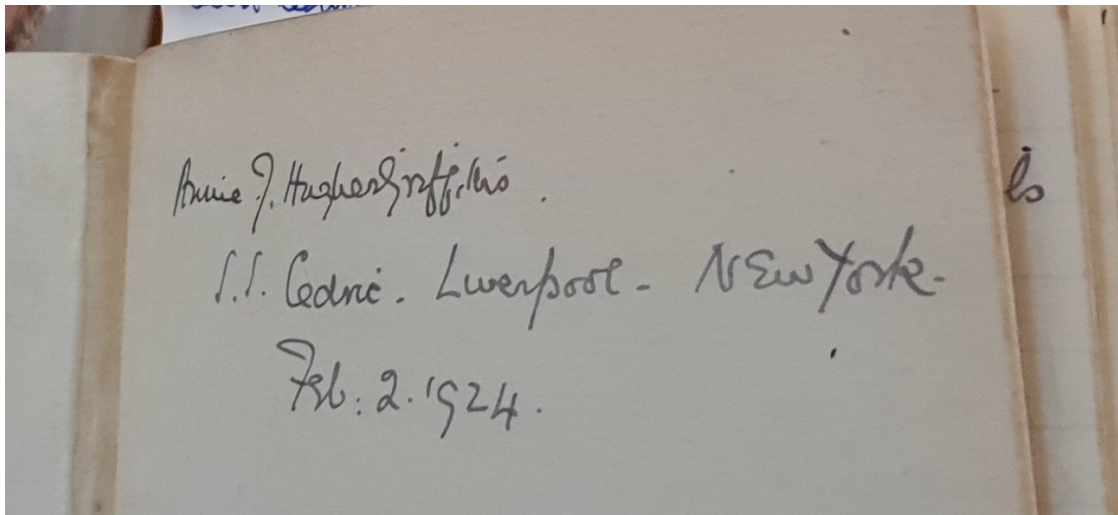 Annie J. Hughes Griffiths.
S.S. Cedric. Liverpool - New York.
Feb: 2. 1924.